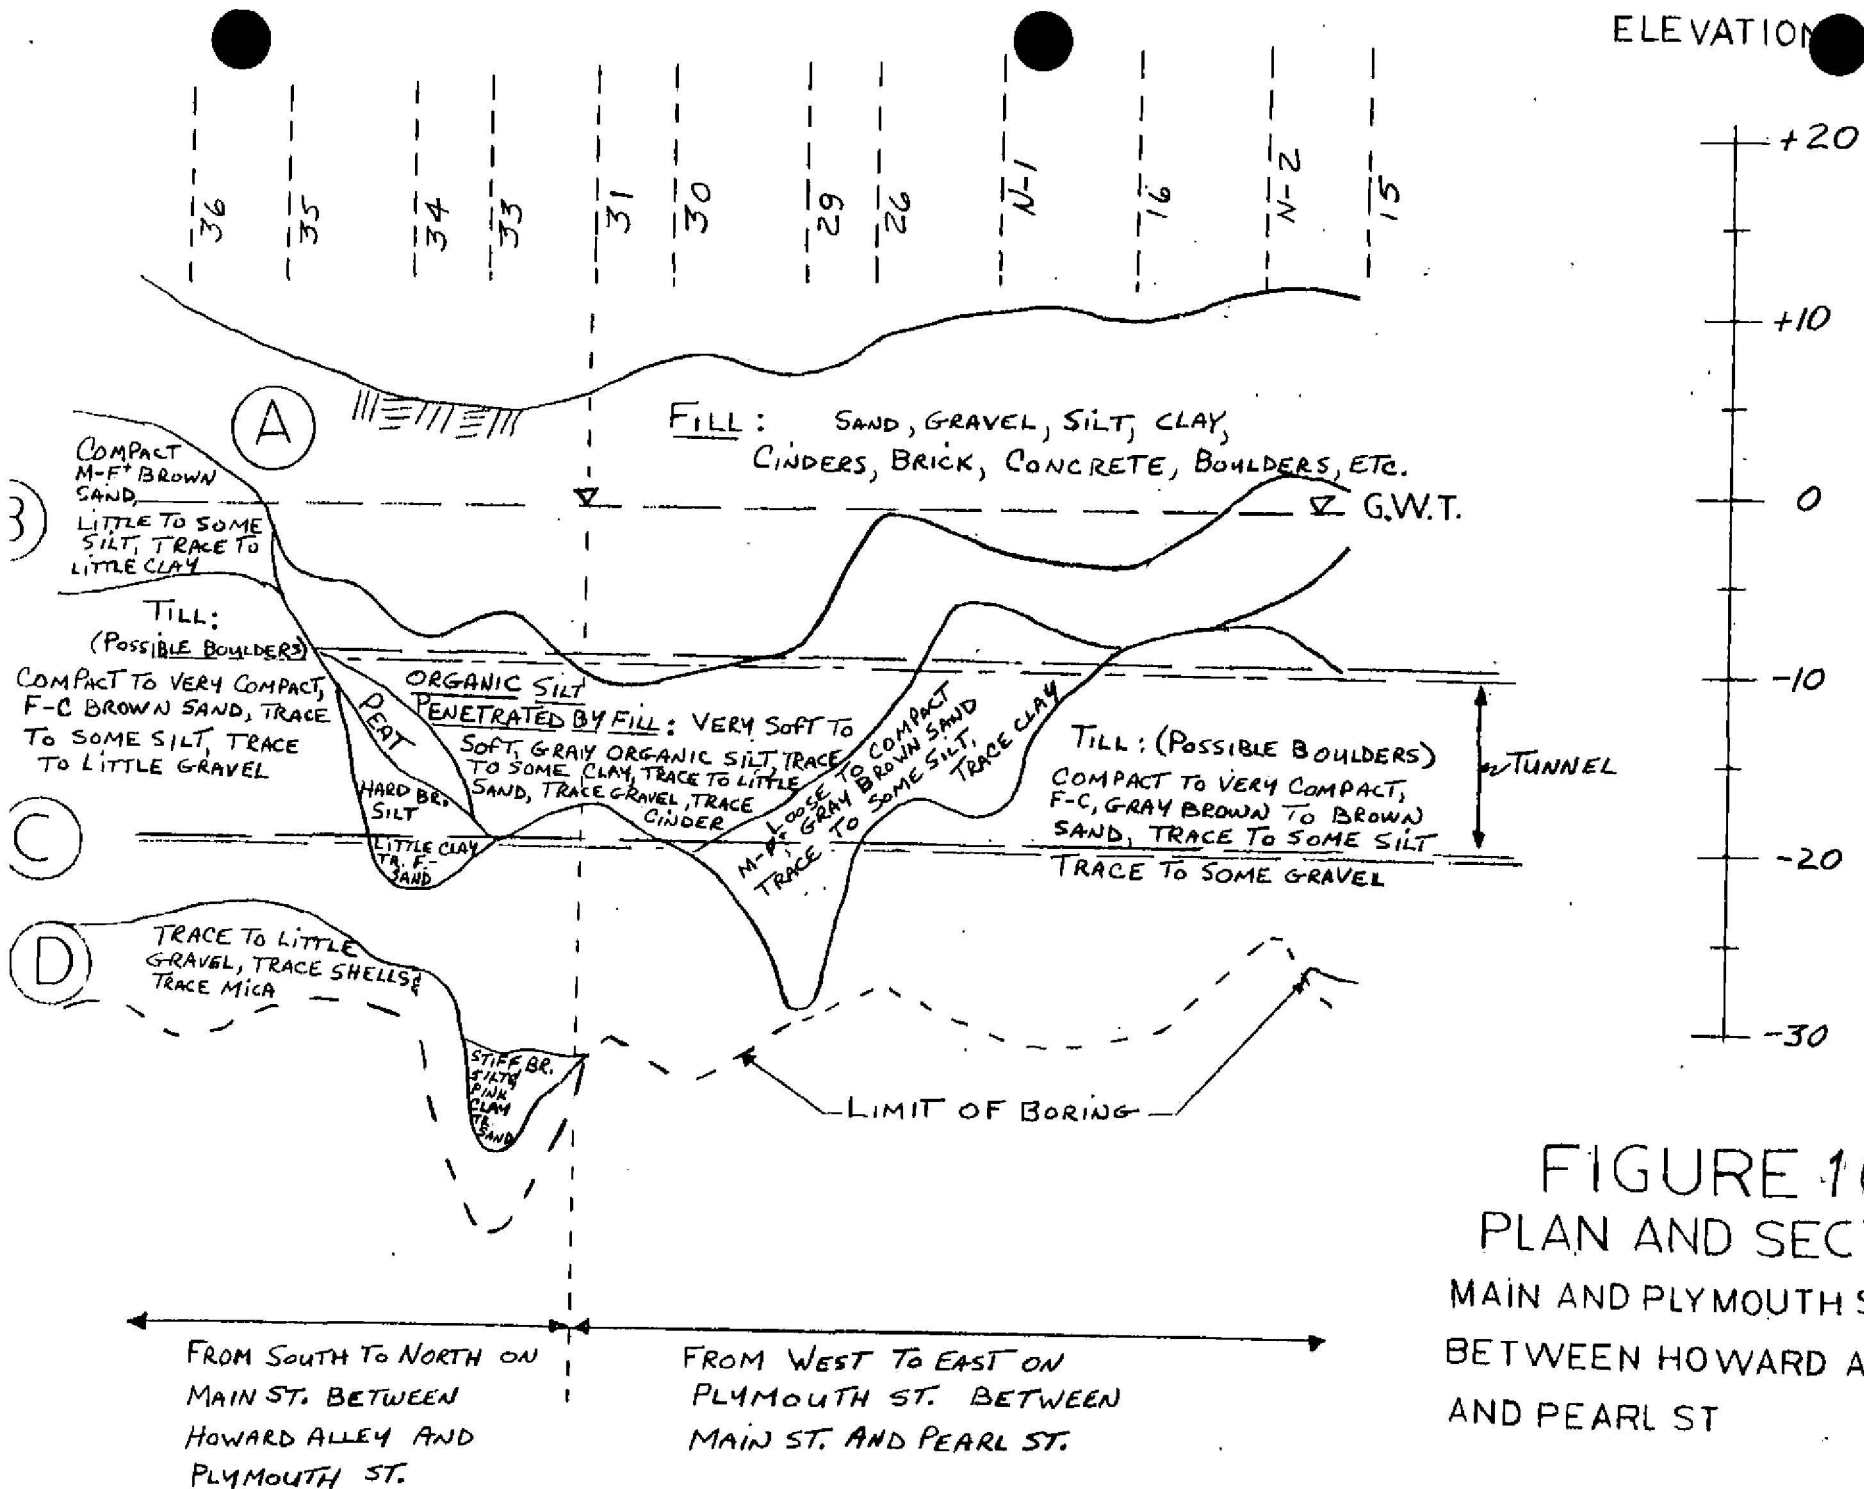 ELEVATION
36
35
34
33
31
30
29
26
N-1
16
N-2
15
+20
+10
0
-10
-20
-30
A
FILL: SAND, GRAVEL, SILT, CLAY,
CINDERS, BRICK, CONCRETE, BOULDERS, ETC.
G.W.T.
B
COMPACT
M-F+ BROWN
SAND,
LITTLE TO SOME
SILT, TRACE TO
LITTLE CLAY
TILL:
(POSSIBLE BOULDERS)
COMPACT TO VERY COMPACT,
F-C BROWN SAND, TRACE
TO SOME SILT, TRACE
TO LITTLE GRAVEL
PEAT
HARD BR.
SILT
LITTLE CLAY
TR. F.-
SAND
ORGANIC SILT
PENETRATED BY FILL: VERY SOFT TO
SOFT, GRAY ORGANIC SILT, TRACE
TO SOME CLAY, TRACE TO LITTLE
SAND, TRACE GRAVEL, TRACE
CINDER
LOOSE TO COMPACT
GRAY BROWN SAND
TRACE TO SOME SILT,
TRACE CLAY
TILL: (POSSIBLE BOULDERS)
COMPACT TO VERY COMPACT,
F-C, GRAY BROWN TO BROWN
SAND, TRACE TO SOME SILT
TRACE TO SOME GRAVEL
TUNNEL
C
D
TRACE TO LITTLE
GRAVEL, TRACE SHELLS &
TRACE MICA
STIFF BR.
SILTY
PINK
CLAY
TR.
SAND
LIMIT OF BORING
FROM SOUTH TO NORTH ON
MAIN ST. BETWEEN
HOWARD ALLEY AND
PLYMOUTH ST.
FROM WEST TO EAST ON
PLYMOUTH ST. BETWEEN
MAIN ST. AND PEARL ST.
FIGURE 1
PLAN AND SEC
MAIN AND PLYMOUTH S
BETWEEN HOWARD A
AND PEARL ST